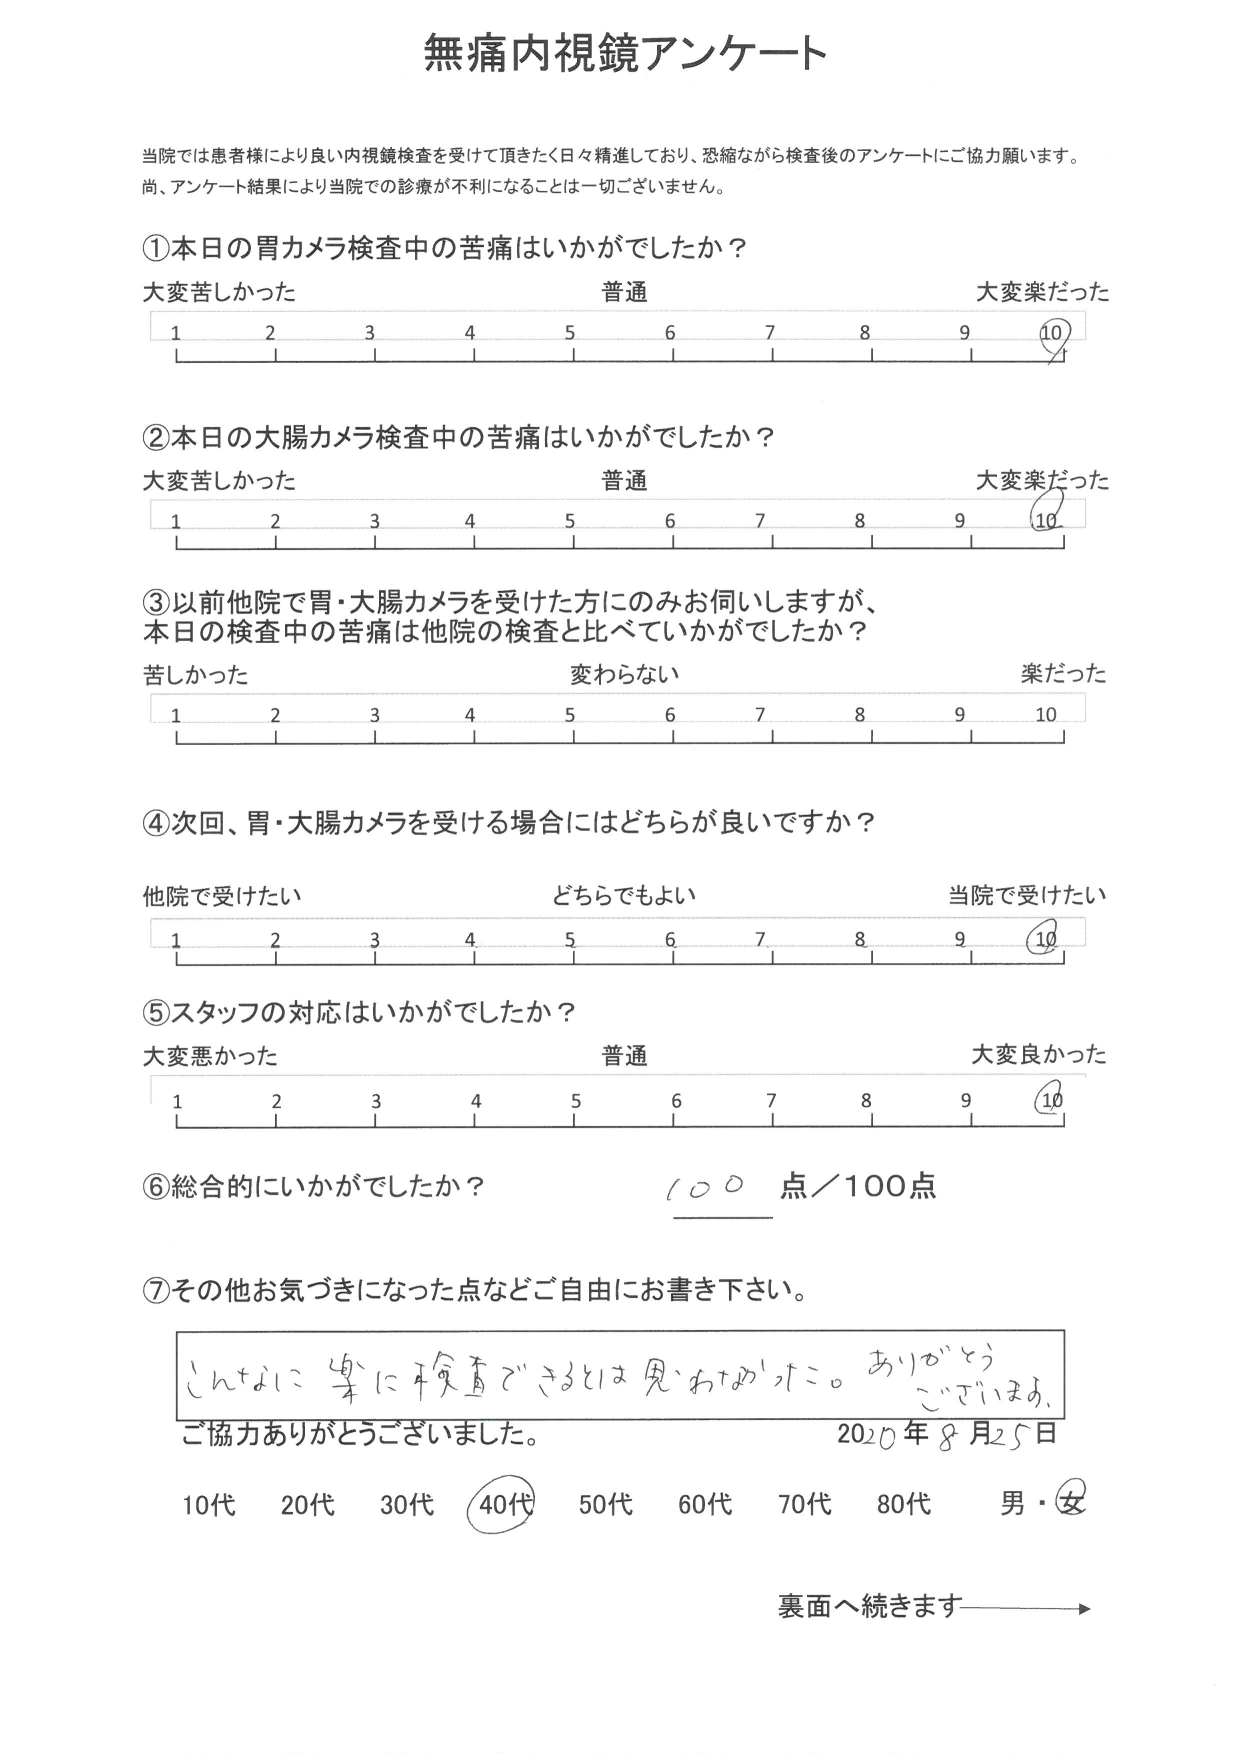 無痛内視鏡アンケート
当院では患者様により良い内視鏡検査を受けて頂きたく日々精進しており、恐縮ながら検査後のアンケートにご協力願います。
尚、アンケート結果により当院での診療が不利になることは一切ございません。
①本日の胃カメラ検査中の苦痛はいかがでしたか？
大変苦しかった 普通 大変楽だった
1 2 3 4 5 6 7 8 9 10
②本日の大腸カメラ検査中の苦痛はいかがでしたか？
大変苦しかった 普通 大変楽だった
1 2 3 4 5 6 7 8 9 10
③以前他院で胃・大腸カメラを受けた方にのみお伺いしますが、
本日の検査中の苦痛は他院の検査と比べていかがでしたか？
苦しかった 変わらない 楽だった
1 2 3 4 5 6 7 8 9 10
④次回、胃・大腸カメラを受ける場合にはどちらが良いですか？
他院で受けたい どちらでもよい 当院で受けたい
1 2 3 4 5 6 7 8 9 10
⑤スタッフの対応はいかがでしたか？
大変悪かった 普通 大変良かった
1 2 3 4 5 6 7 8 9 10
⑥総合的にいかがでしたか？ 100 点／100点
⑦その他お気づきになった点などご自由にお書き下さい。
こんなに楽に検査できるとは思わなかった。ありがとう
ございます。
ご協力ありがとうございました。 2020年8月25日
10代 20代 30代 40代 50代 60代 70代 80代 男・女
裏面へ続きます